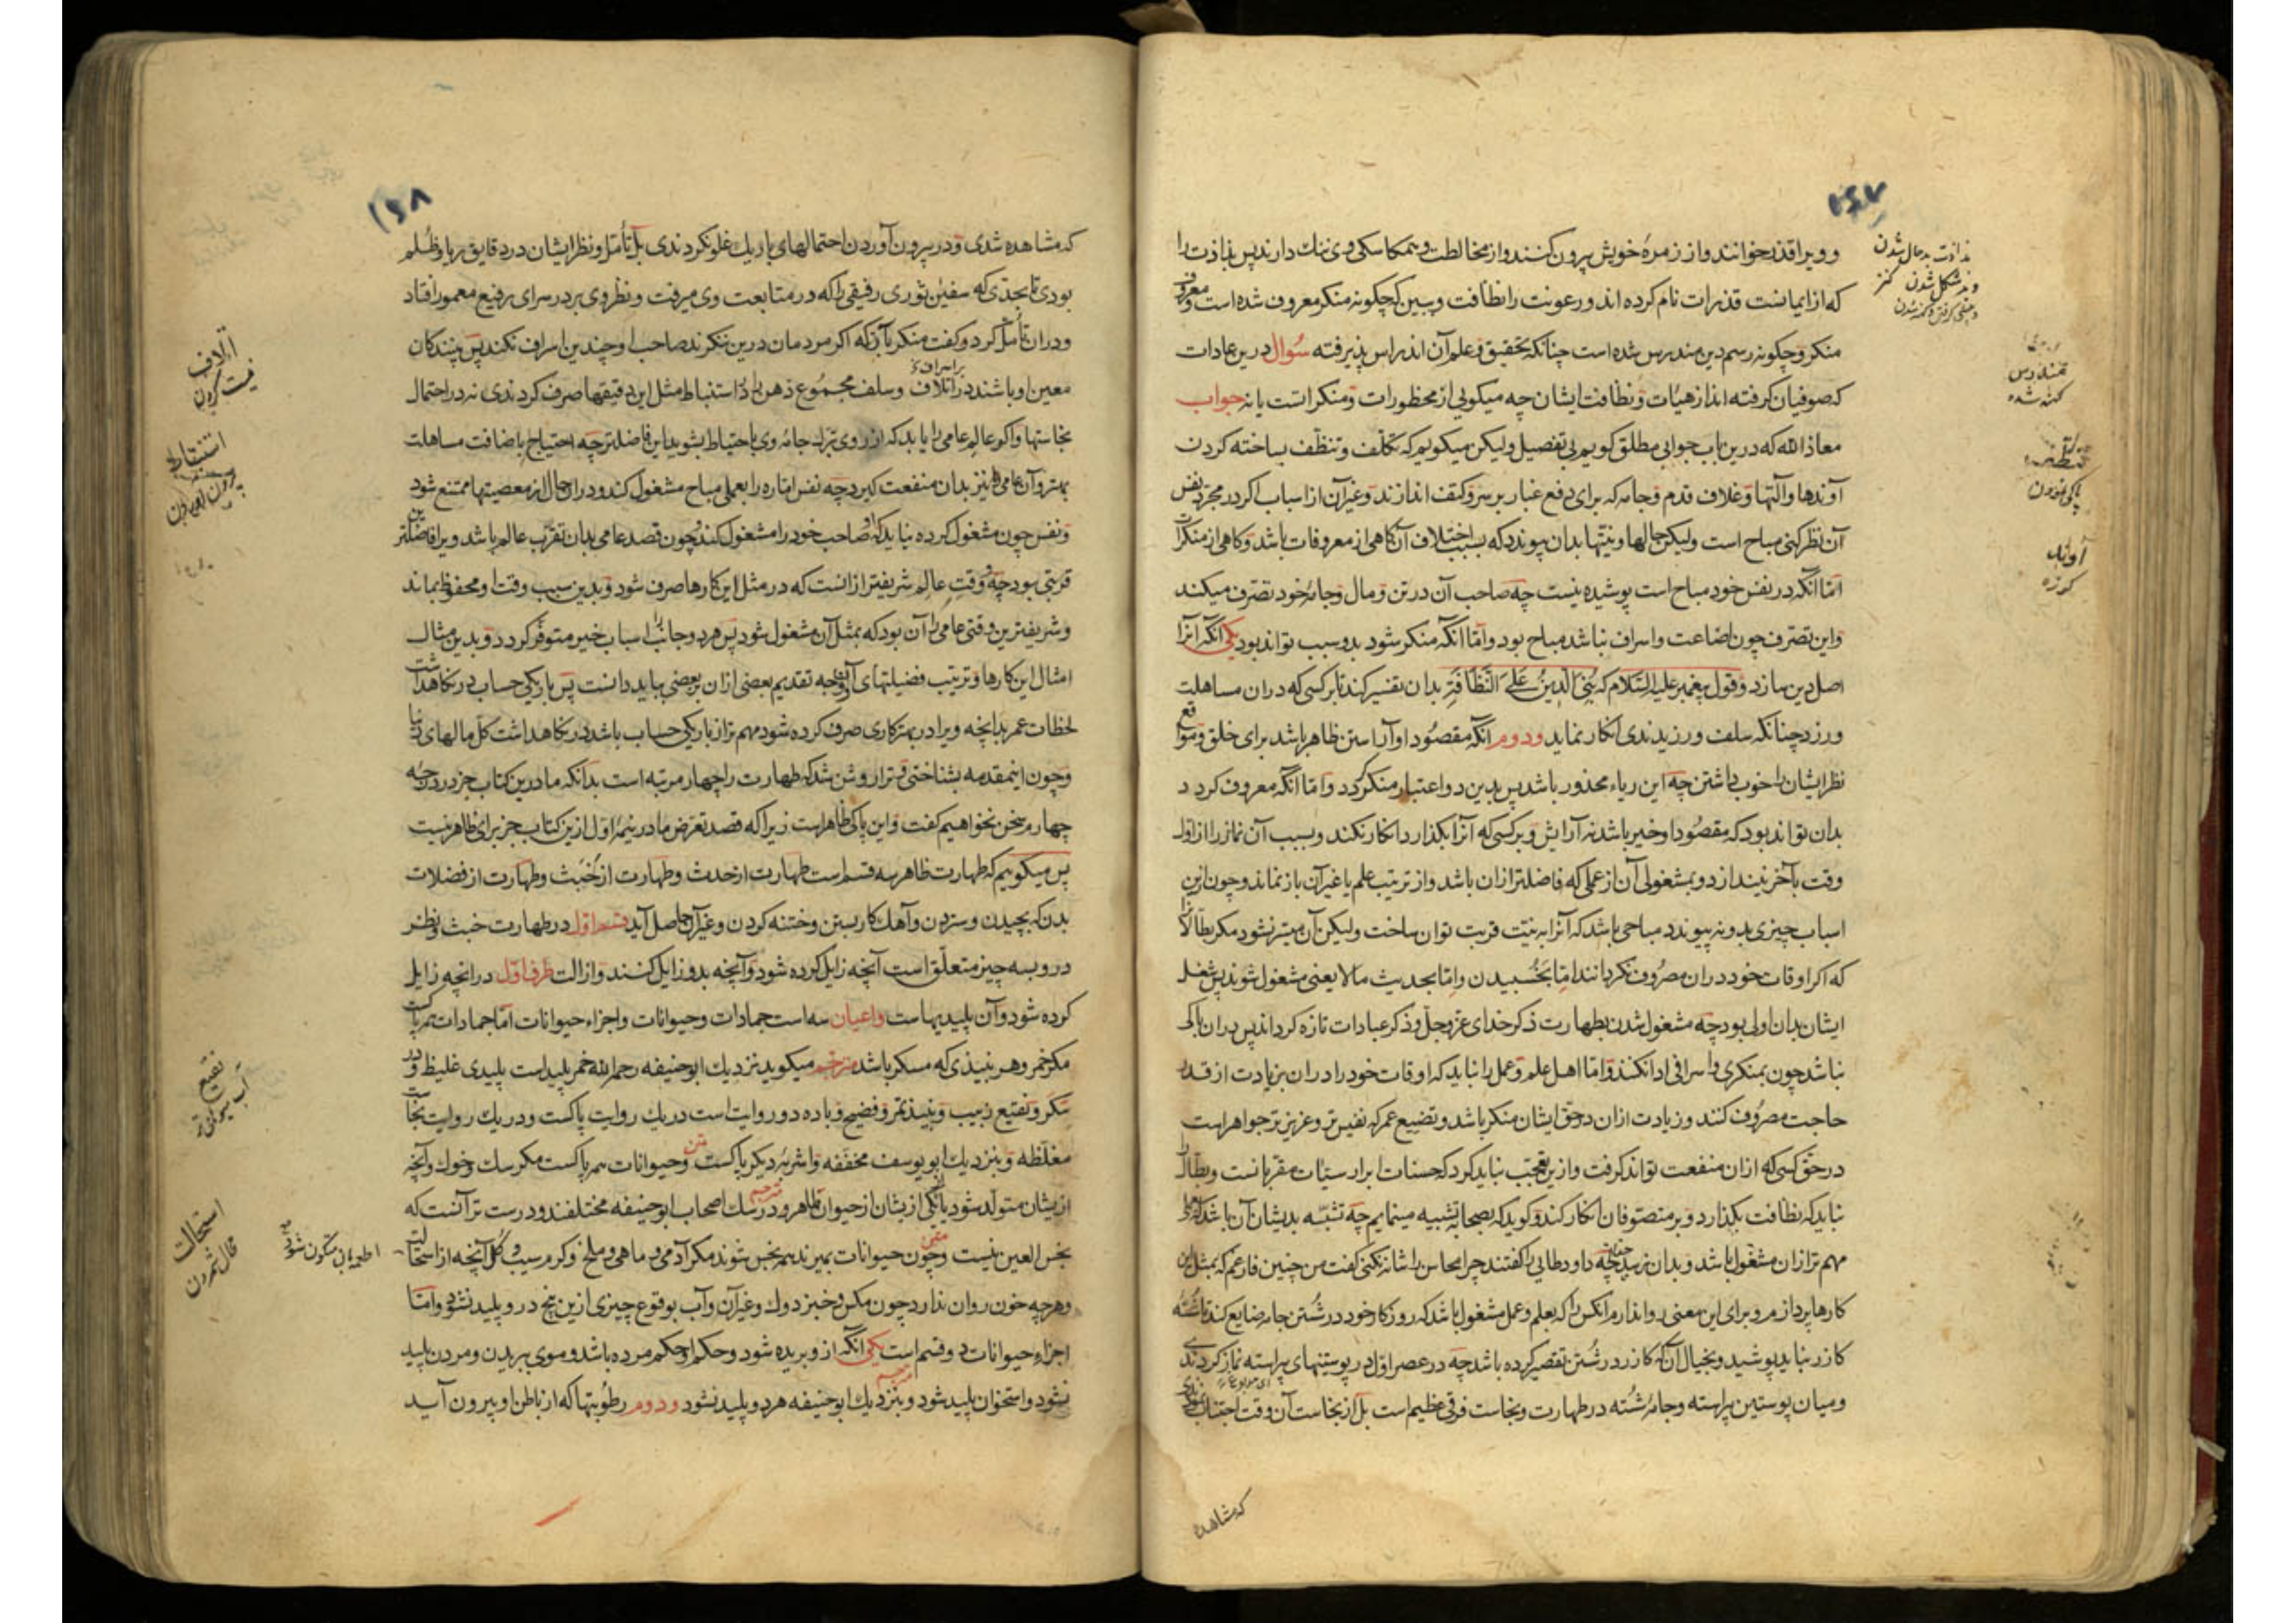 ۱۶۷
و ویرا قذر خوانند و از زمرهٔ خویش بیرون کنند و از مخالطت و همکاسکی وی ننک دارند پس بذاذت را
که از ایمانست قذرات نام کرده اند و رعونت را نظافت و ببین که چکونه منکر معروف شده است و معروف
منکر و چکونه رسم دین مندرس شده است چنانکه تحقیق و علم آن اندراس پذیرفته سُوال درین عادات
که صوفیان کرفته اند از هیآت و نظافت ایشان چه میکویی از محظورات و منکر است یا نه جواب
معاذ الله که درین باب جوابی مطلق کویم بی تفصیل ولیکن میکویم که تکلّف و تنظّف بساخته کردن
آوندها و آلتها و غلاف قدم و جامه که برای دفع غبار بر سر و کتف اندازند و غیر آن از اسباب اکر در مجرد نفس
آن نظر کنی مباح است ولیکن حالها و نیتها بدان پیوندد که بسبب اختلاف آن کاهی از معروفات باشد و کاهی از منکرات
امّا آنکه در نفس خود مباح است پوشیده نیست چه صاحب آن در تن و مال و جامهٔ خود تصرّف میکند
و این تصرّف چون اضاعت و اسراف نباشد مباح بود و امّا آنکه منکر شود بدو سبب تواند بود یکی آنکه آنرا
اصل دین سازد و قول پیغمبر علیه السّلام که بُنِیَ الدّینُ عَلَی النَّظَافَةِ بدان تفسیر کند تا بر کسی که دران مساهلت
ورزد چنانکه سلف ورزیدندی انکار نماید و دوم آنکه مقصُود او آراستن ظاهر باشد برای خلق و مواقع
نظر ایشان را خوب داشتن چه این ریاء محذور باشد پس بدین دو اعتبار منکر کردد و امّا آنکه معروف کردد
بدان تواند بود که مقصُود او خیر باشد نه آرایش و بر کسی که آنرا بکذارد انکار نکند و بسبب آن نماز را از اوّل
وقت بآخر نیندازد و بمشغولی آن از عملی که فاضلتر ازان باشد و از ترتیب علم یا غیر آن باز نماند و چون ازین
اسباب چیزی بدو نه پیوندد مباحی باشد که آنرا به نیّت قربت توان ساخت ولیکن آن میسّر نشود مکر بطّالانرا
که اکر اوقات خود دران مصرُوف نکردانند امّا بخُسپیدن و امّا بحدیث ما لا یعنی مشغول شوند پس شغل
ایشان بدان اولی بود چه مشغول شدن بطهارت ذکر خدای عزّ و جلّ و ذکر عبادات تازه کرداند پس دران باکی
نباشد چون بمنکری و اسرافی ادا نکند و امّا اهل علم و عمل را نباید که اوقات خود را دران بزیادت از قدر
حاجت مصرُوف کنند و زیادت ازان در حق ایشان منکر باشد و تضییع عمر که نفیس تر و عزیز تر جواهر است
در حقّ کسی که ازان منفعت تواند کرفت و ازین تعجّب نباید کرد که حسنات ابرار سیّات مقربانست و بطّال را
نباید که نظافت بکذارد و بر متصوفان انکار کند و کوید که بصحابه تشبیه مینمایم چه تشبّه بدیشان آن باشد که
مهم تر ازان مشغول باشد و بدان نرسد چه داود طایی را کفتند چرا محاسن را شانه نکنی کفت من چنین فارغم که بمثل این
کارها پردازم و برای این معنی روا ندارم آنکس را که بعلم و عمل مشغول باشد که روزکار خود در شُستن جامه ضایع کند تا شسته
کازر نباید پوشید و بخیال آن که کازر در شُستن تقصیر کرده باشد چه در عصر اوّل در پوستینهای پیراسته نماز کردندی
و میان پوستین پیراسته و جامهٔ شُسته در طهارت و نجاست فرقی عظیم است بل از نجاست آن وقت اجتناب
که مشاهده
بذاذت بد حال شدن
مندرس
کهنه شده
تنظف
پاکی نمودن
آوند
کوزه
۱۶۸
که مشاهده شدی و در بیرون آوردن احتمالهای باریك غلو نکردندی بل تأمّل و نظر ایشان در دقایق ریا و ظُلم
بودی تا بحدّی که سفین ثوری رفیقی را که در متابعت وی میرفت و نظر وی بر در سرای رفیع معمور افتاد
و دران تأمّل کرد و کفت منکر بآنکه اکر مردمان درین ننکرند صاحب او چندین اسراف نکند پس بینندکان
معین او باشند در اتلاف و سلف مجمُوع ذهن را در استنباط مثل این دقیقها صرف کردندی نه در احتمال
نجاستها و اکر عالم عامی را یابد که از روی تبرّك جامهٔ وی باحتیاط بشوید این فاضلتر چه احتیاج باضافت مساهلت
بهتر و آن عامی را نیز بدان منفعت کیرد چه نفس اماره را بعملی مباح مشغول کند و دران حال از معصیتها ممتنع شود
و نفس چون مشغول کرده نیاید که او صاحب خود را مشغول کند و چون قصد عامی بدان تقرّب عالم باشد ویرا فاضلتر
قربتی بود چه وقت عالم شریفتر ازانست که در مثل این کارها صرف شود و بدین سبب وقت او محفوظ بماند
و شریفترین وقتی عامی را آن بود که بمثل آن مشغول شود پس هر دو جانب را اسباب خیر متوفّر کردد و بدین مثال
امثال این کارها و ترتیب فضیلتهای آن و وجه تقدیم بعضی ازان بر بعضی بباید دانست پس باریکی حساب در نکاهداشت
لحظات عمر بدانچه ویرا در بهتر کاری صرف کرده شود مهم تر از باریکی حساب باشد در نکاهداشت کلّ مالهای دنیا
و چون اینمقدمه بشناختی و ترا روشن شد که طهارت را چهار مرتبه است بدانکه ما درین کتاب جز در درجهٔ
چهارم سخن نخواهیم کفت و این پاکی ظاهر است زیراکه قصد تعرّض ما در نیمهٔ اوّل ازین کتاب جز برای ظاهر نیست
پس میکوییم که طهارت ظاهر سه قسم است طهارت از حدث و طهارت از خُبث و طهارت از فضلات
بدن که بچیدن و ستردن و آهك کار بستن و ختنه کردن و غیر آن حاصل آید قسم اوّل در طهارت خبث و نظر
درو بسه چیز متعلّق است آنچه زایل کرده شود و آنچه بدو زایل کنند و ازالت طرف اوّل در آنچه زایل
کرده شود و آن پلیدیهاست و اعیان سه است جمادات و حیوانات و اجزاء حیوانات امّا جمادات همه پاکست
مکر خمر و هر نبیذی که مسکر باشد مترجم میکوید نزدیك ابو حنیفه رحمه الله خمر پلید است پلیدی غلیظ و در
سکر و نقیع زبیب و نبیذ تمر و فضیح و باده دو روایت است در یك روایت پاکست و در یك روایت نجاست
مغلّظه و بنزدیك ابو یوسف مخففه و اشربهٔ دیکر پاکست متن و حیوانات همه پاکست مکر سك و خوك و آنچه
از یشان متولّد شود یا یکی از یشان از حیوان طاهر مترجم و در سك اصحاب ابو حنیفه مختلفند و درست تر آنست که
نجس العین نیست متن و چون حیوانات بمیرند همه نجس شوند مکر آدمی و ماهی و ملخ و کرم سیب و کلّ آنچه از استحالت
و هر چه خون روان ندارد چون مکس و خبز دوك و غیر آن و آب بوقوع چیزی ازین پنج درو پلید نشود و امّا
اجزاء حیوانات دو قسم است یکی آنکه از و بریده شود و حکم او حکم مرده باشد و موی ببریدن و مردن پلید
نشود و استخوان پلید شود مترجم و بنزدیك ابو حنیفه هر دو پلید نشود و دوم رطُوبتها که از باطن او بیرون آید
اتلاف
نیست کردن
استنباط
بیرون آوردن
نقیع
استحالت